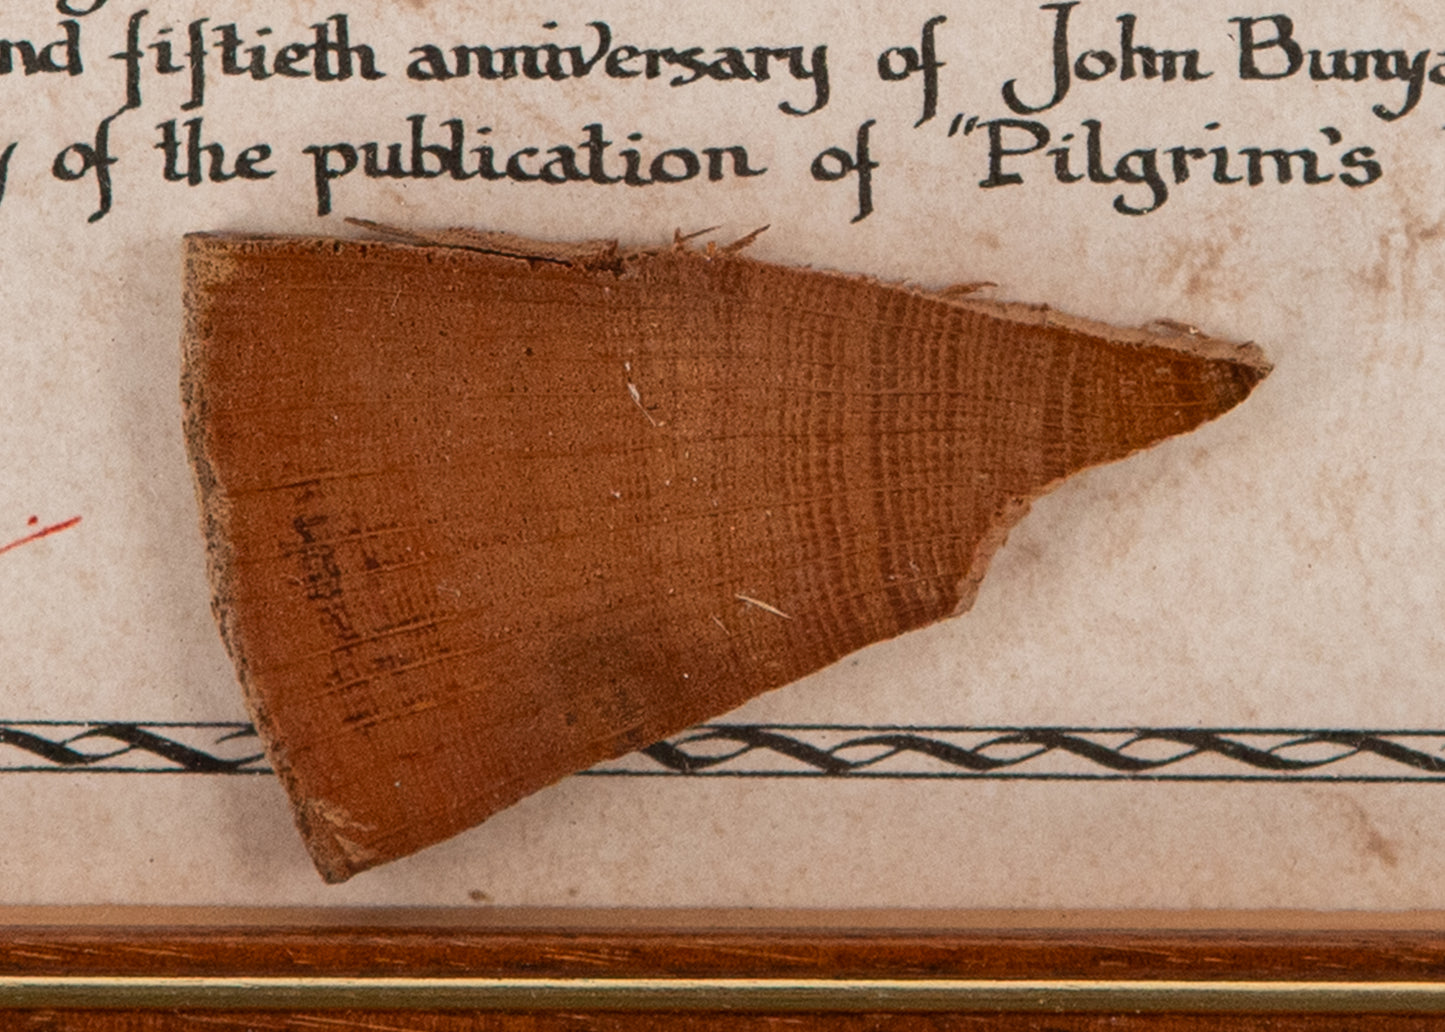 nd fiftieth anniversary of John Bunya
of the publication of "Pilgrim's